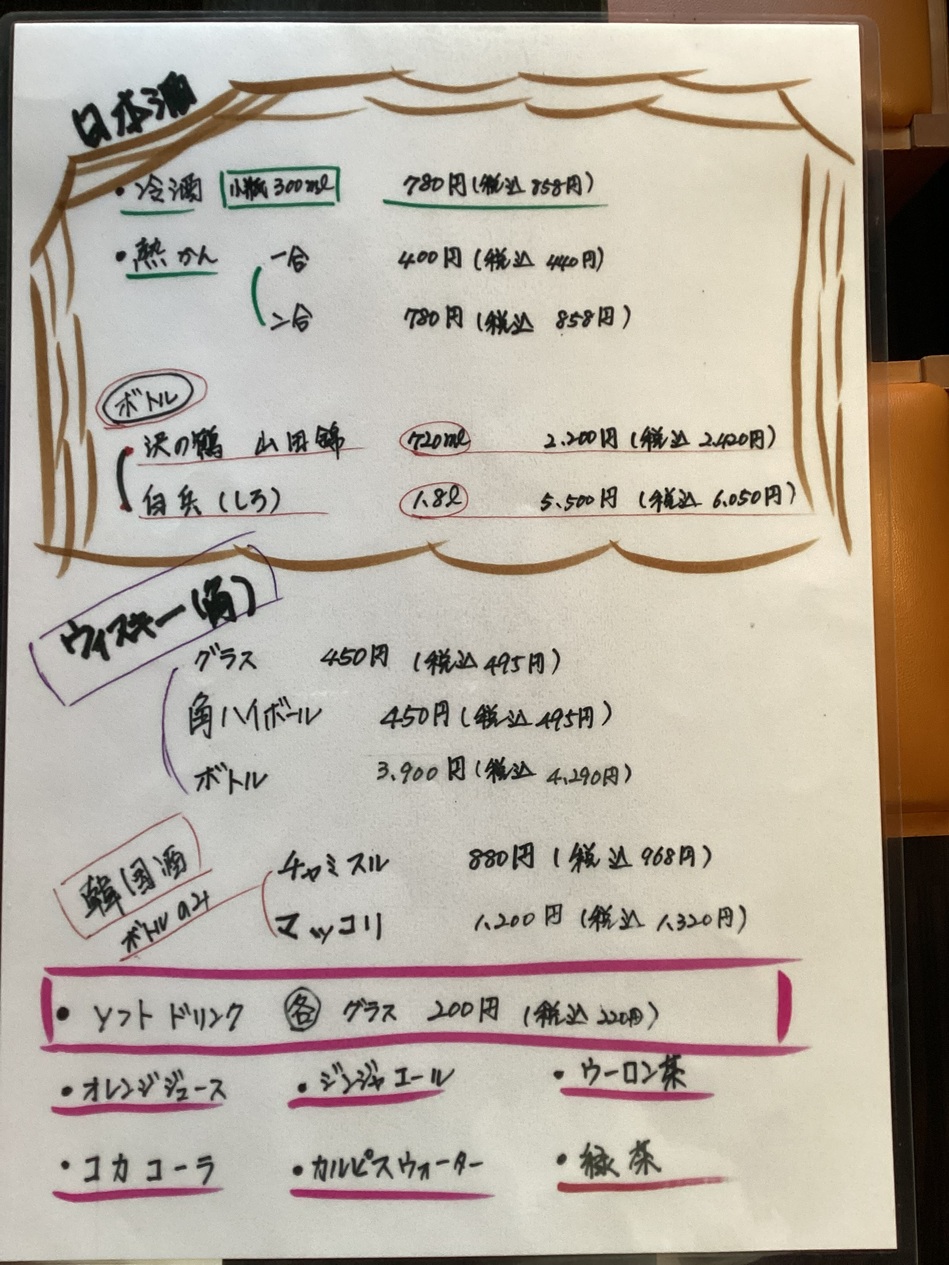 日本酒
・冷酒 小瓶300ml 780円(税込858円)
・熱かん 一合 400円(税込 440円)
二合 780円(税込 858円)
ボトル
沢の鶴 山田錦 720ml 2.200円(税込 2.420円)
白兵(しろ) 1.8l 5.500円(税込 6.050円)
ウィスキー(角)
グラス 450円(税込495円)
角ハイボール 450円(税込495円)
ボトル 3.900円(税込 4.290円)
韓国酒
ボトルのみ
チャミスル 880円(税込968円)
マッコリ 1.200円(税込 1.320円)
・ソフトドリンク 各 グラス 200円(税込220円)
・オレンジジュース ・ジンジャエール ・ウーロン茶
・コカコーラ ・カルピスウォーター ・緑茶